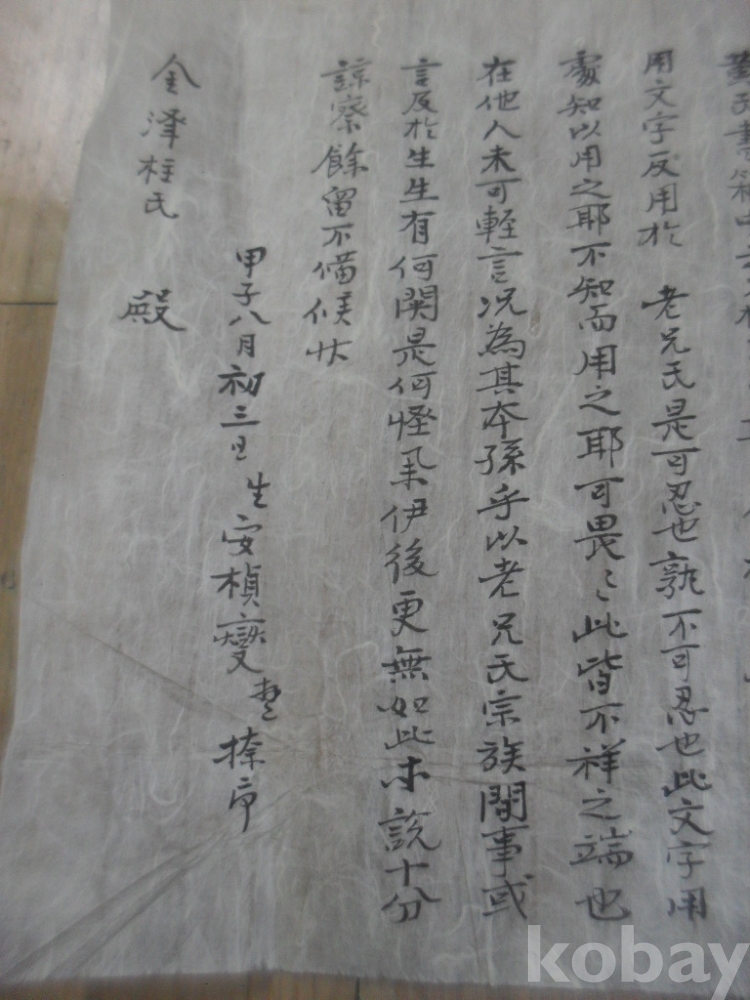 用文字反用於 老兄氏是可忍也孰不可忍也此文字用
處知以用之耶不知而用之耶可畏〻此皆不祥之端也
在他人未可輕言況為其本孫乎以老兄氏宗族間事或
言及於生生有何関是何怪系伊後更無如此本說十分
諒察餘留不備候狀
甲子八月初三日 生安楨燮 拜
金澤柱氏 殿
kobay